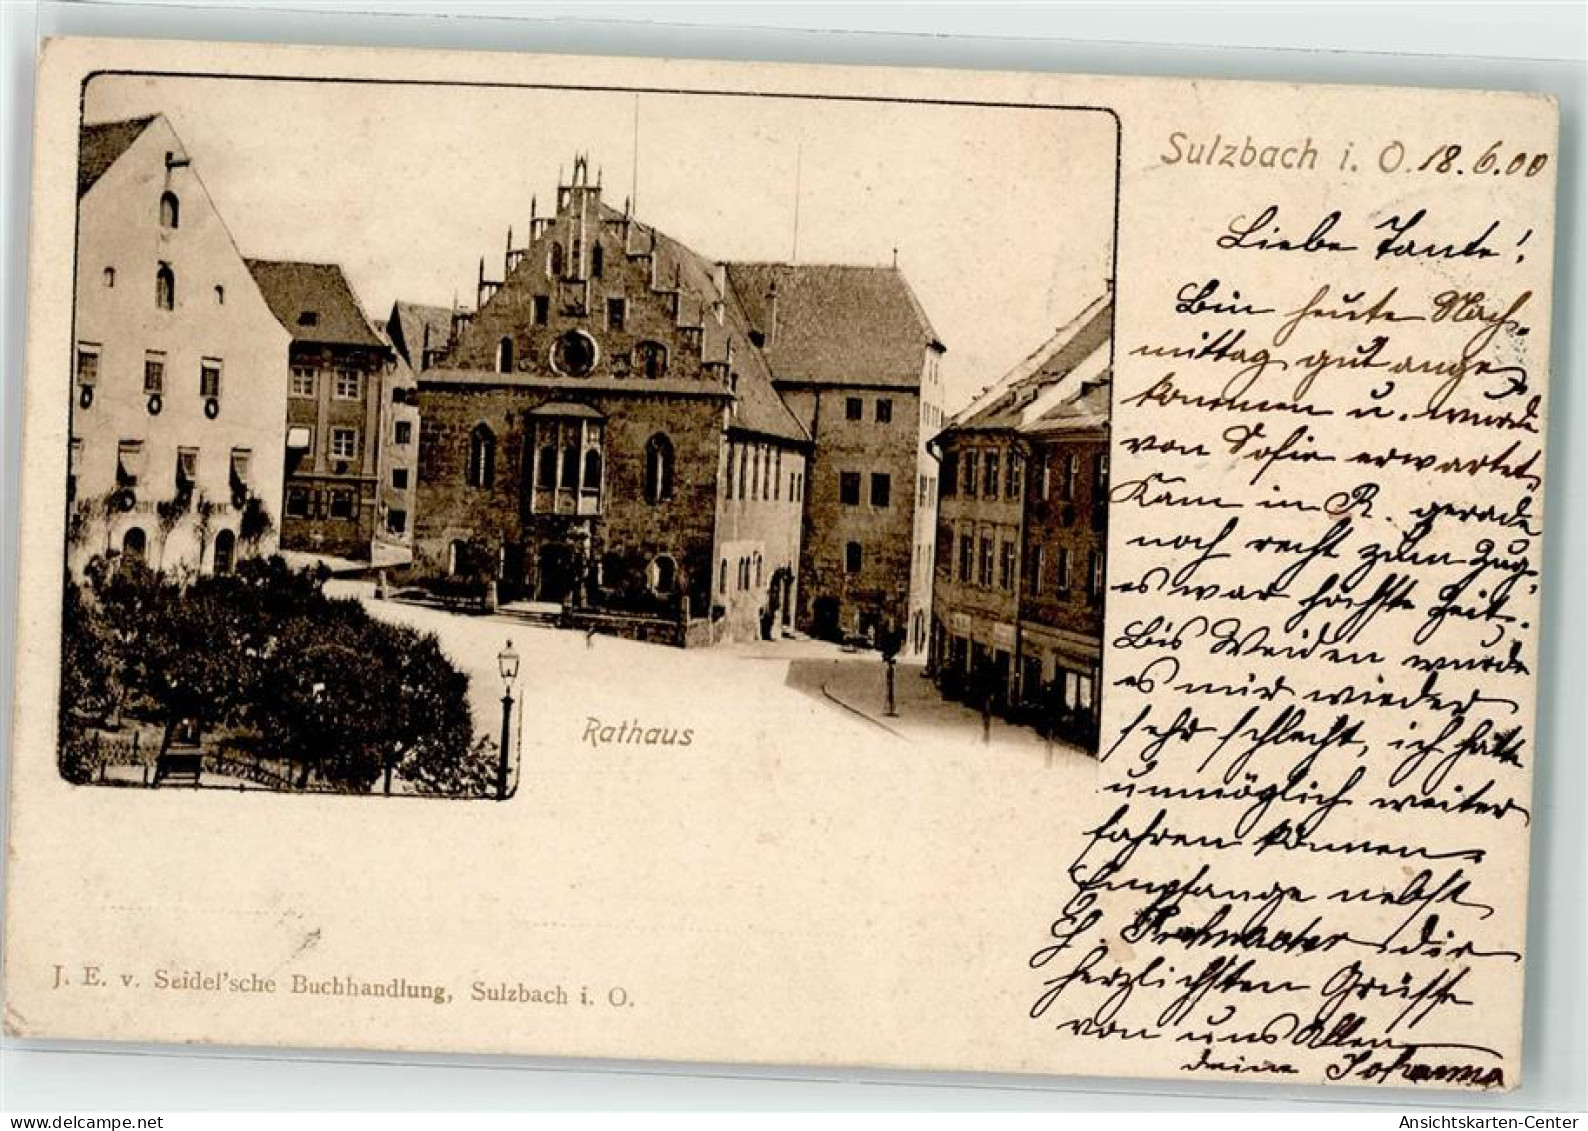 Sulzbach i. O. 18.6.00
Liebe Tante!
Bin heute Nach-
mittag gut ange-
kommen u. wurde
von Sofie erwartet.
Kam in R. gerade
noch recht zum Zug,
es war höchste Zeit.
Bis Weiden wurde
es mir wieder
sehr schlecht, ich hätte
unmöglich weiter
fahren können.
Empfange nebst
die
herzlichsten Grüsse
von uns Allen
deine Johanna
Rathaus
J. E. v. Seidel'sche Buchhandlung, Sulzbach i. O.
Ansichtskarten-Center